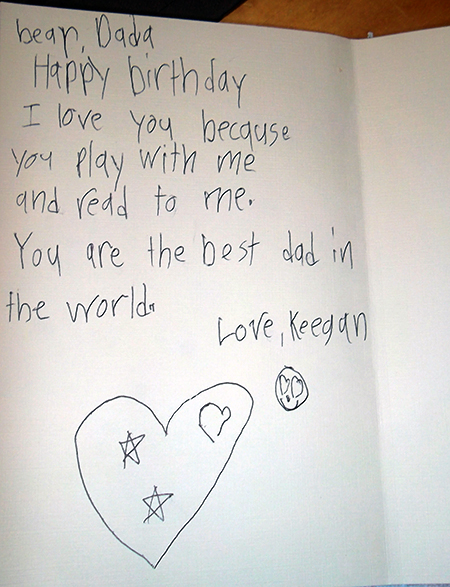 bear, Dada
Happy birthday
I love you because
you play with me
and read to me.
You are the best dad in
the world.
Love, Keegan